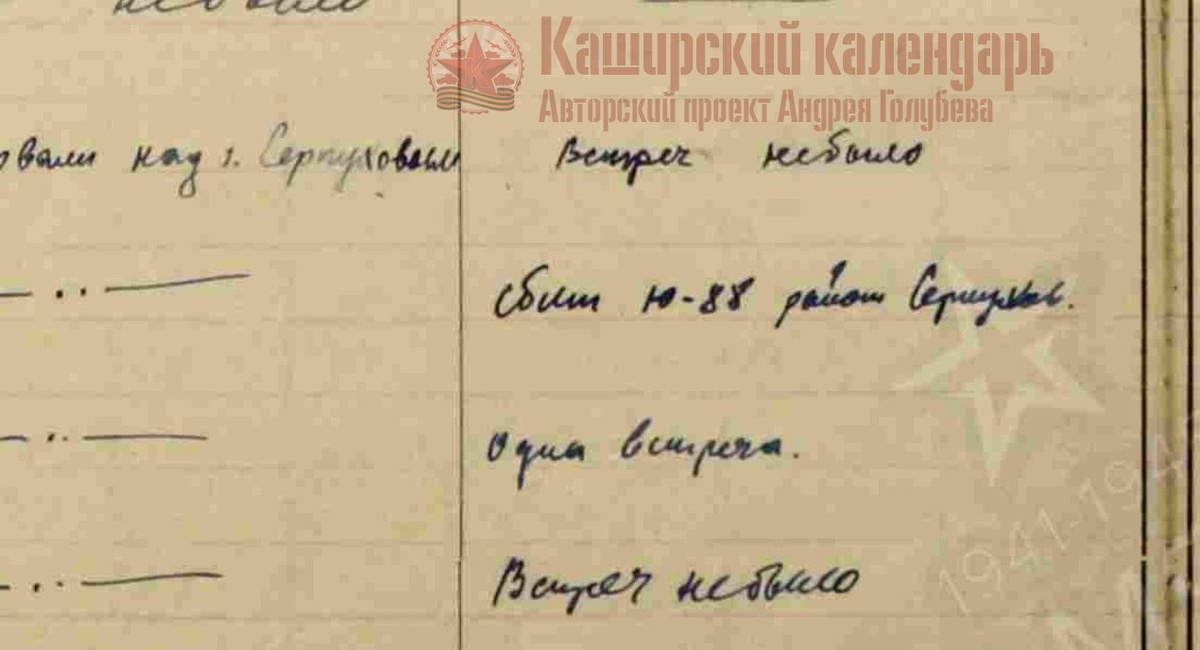 небыло
Каширский календарь
Авторский проект Андрея Голубева
вали над г. Серпуховым Встреч небыло
— .. — сбит Ю-88 район Серпухов.
— .. — Одна встреча.
— .. — Встреч небыло
1941-194